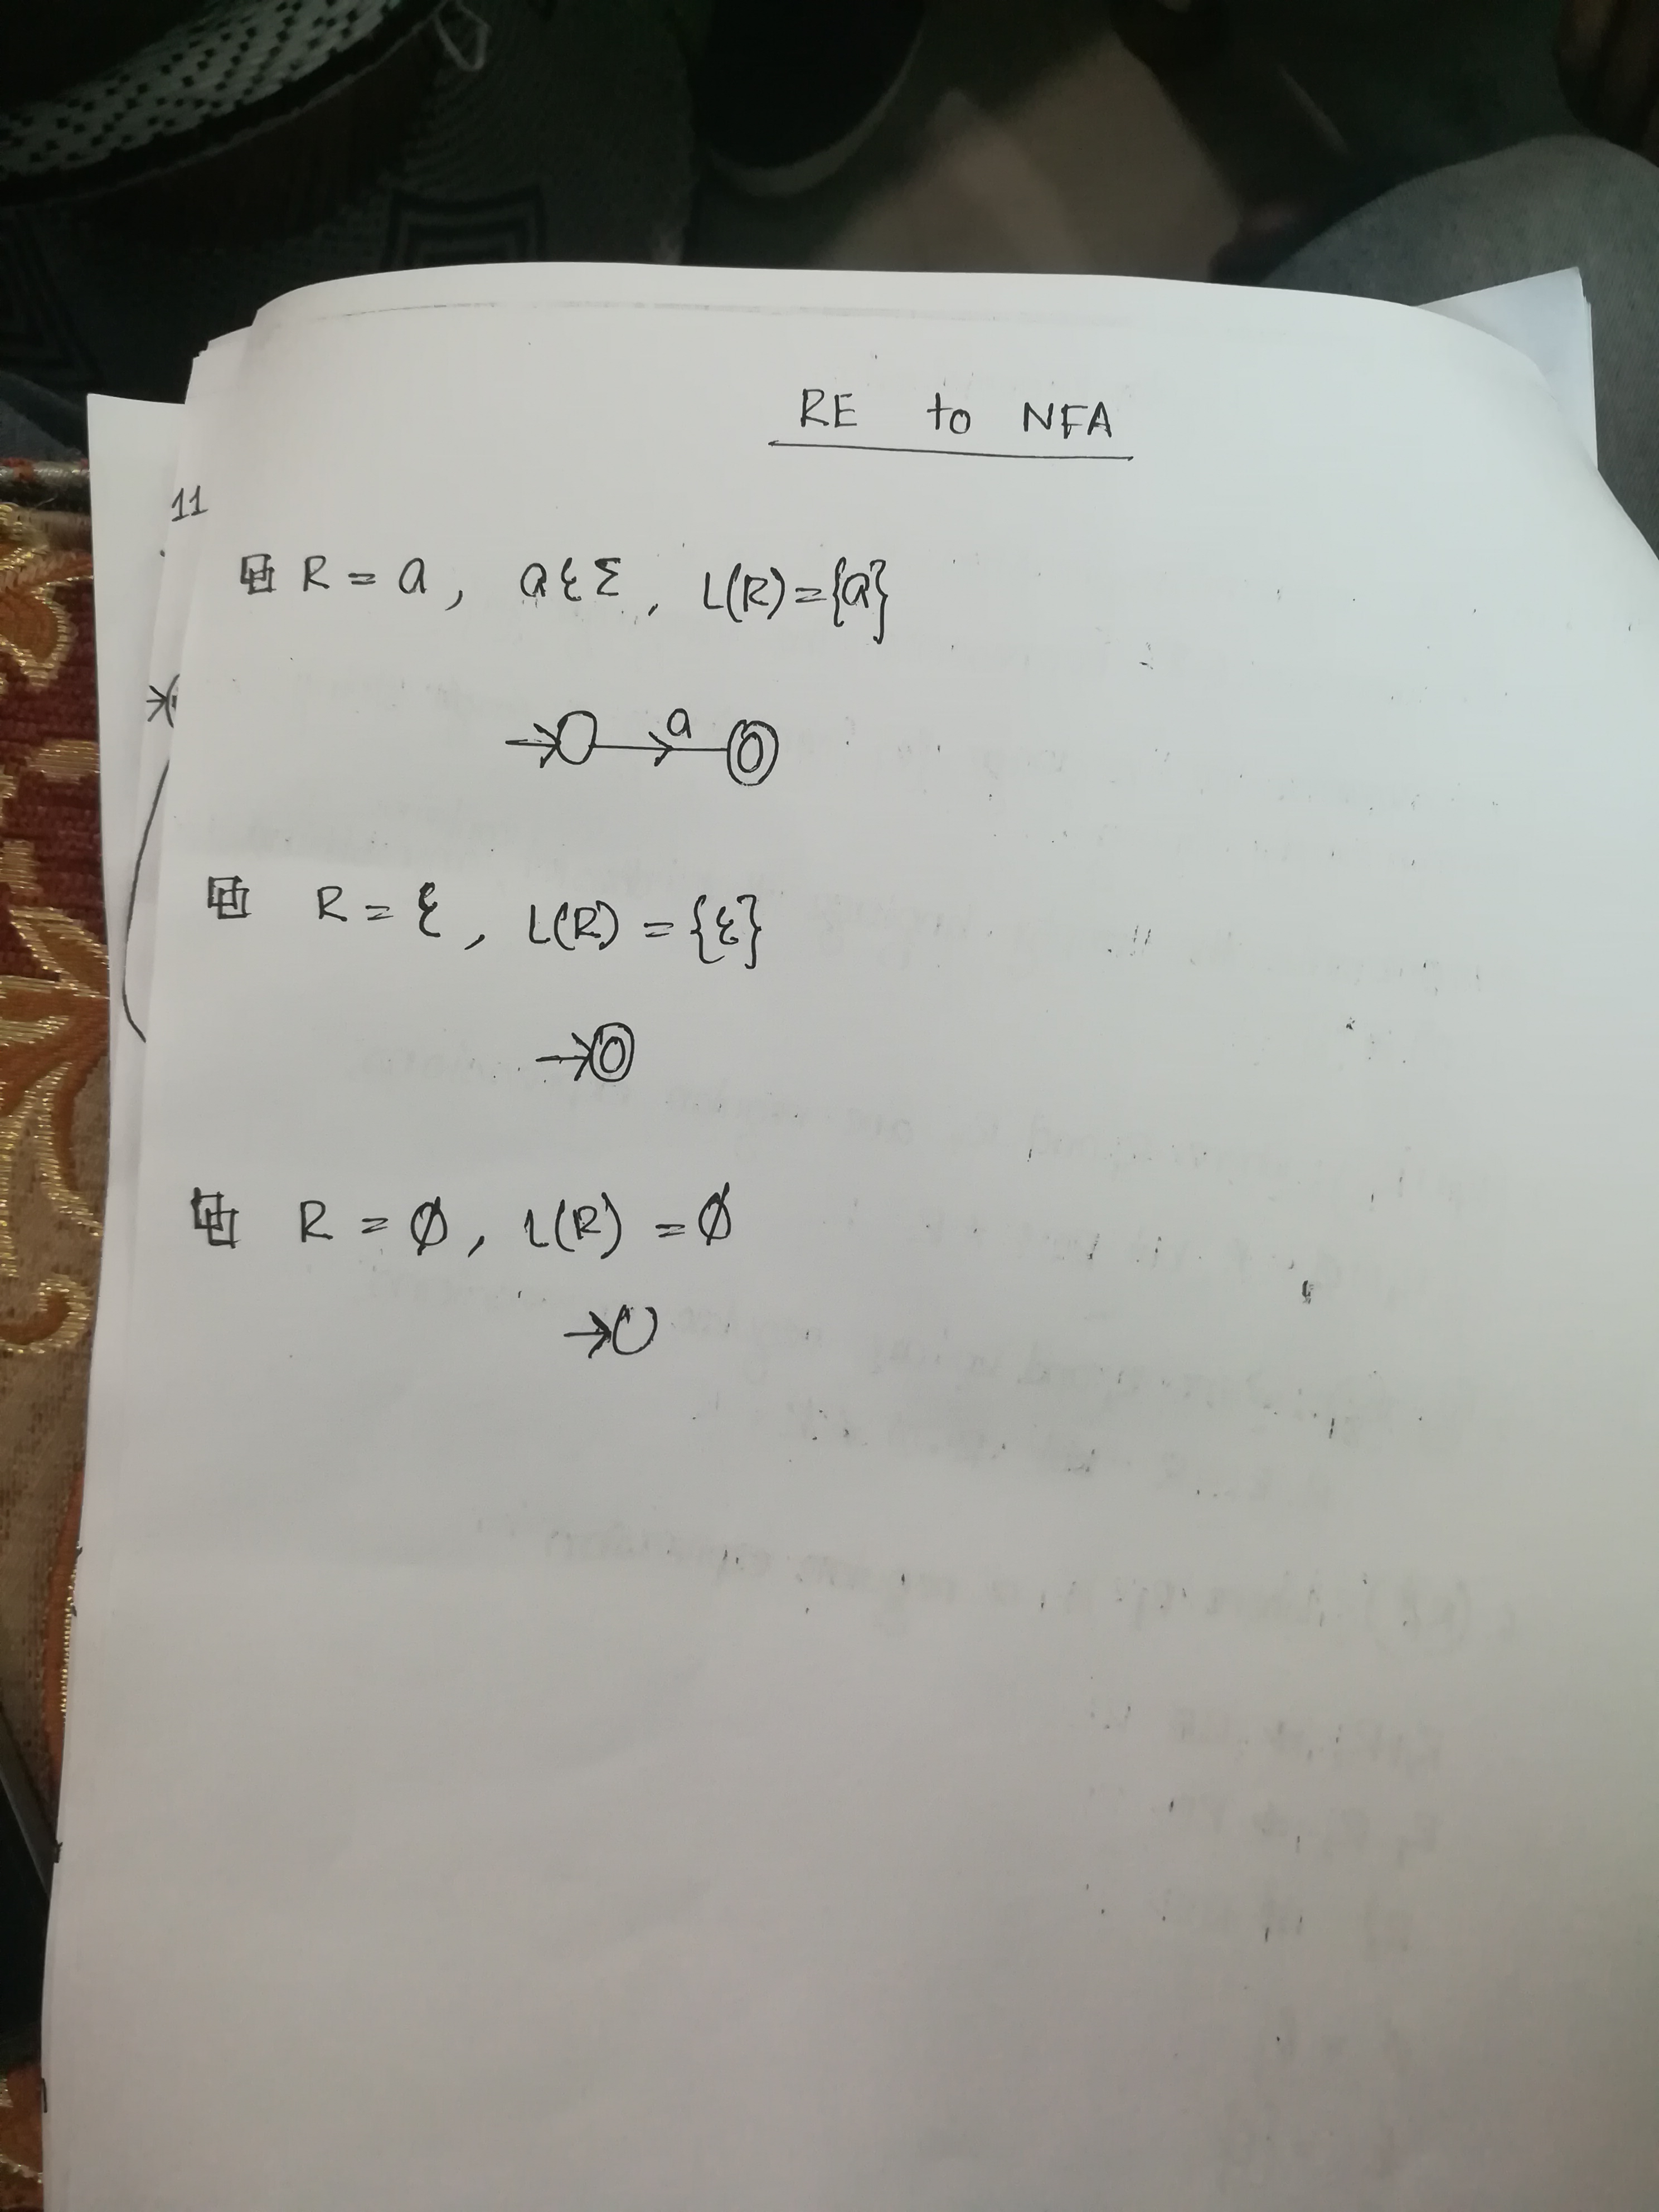 RE to NFA
11
R = a, a ε Σ, L(R) = {a}
a
R = ε, L(R) = {ε}
R = Ø, L(R) = Ø